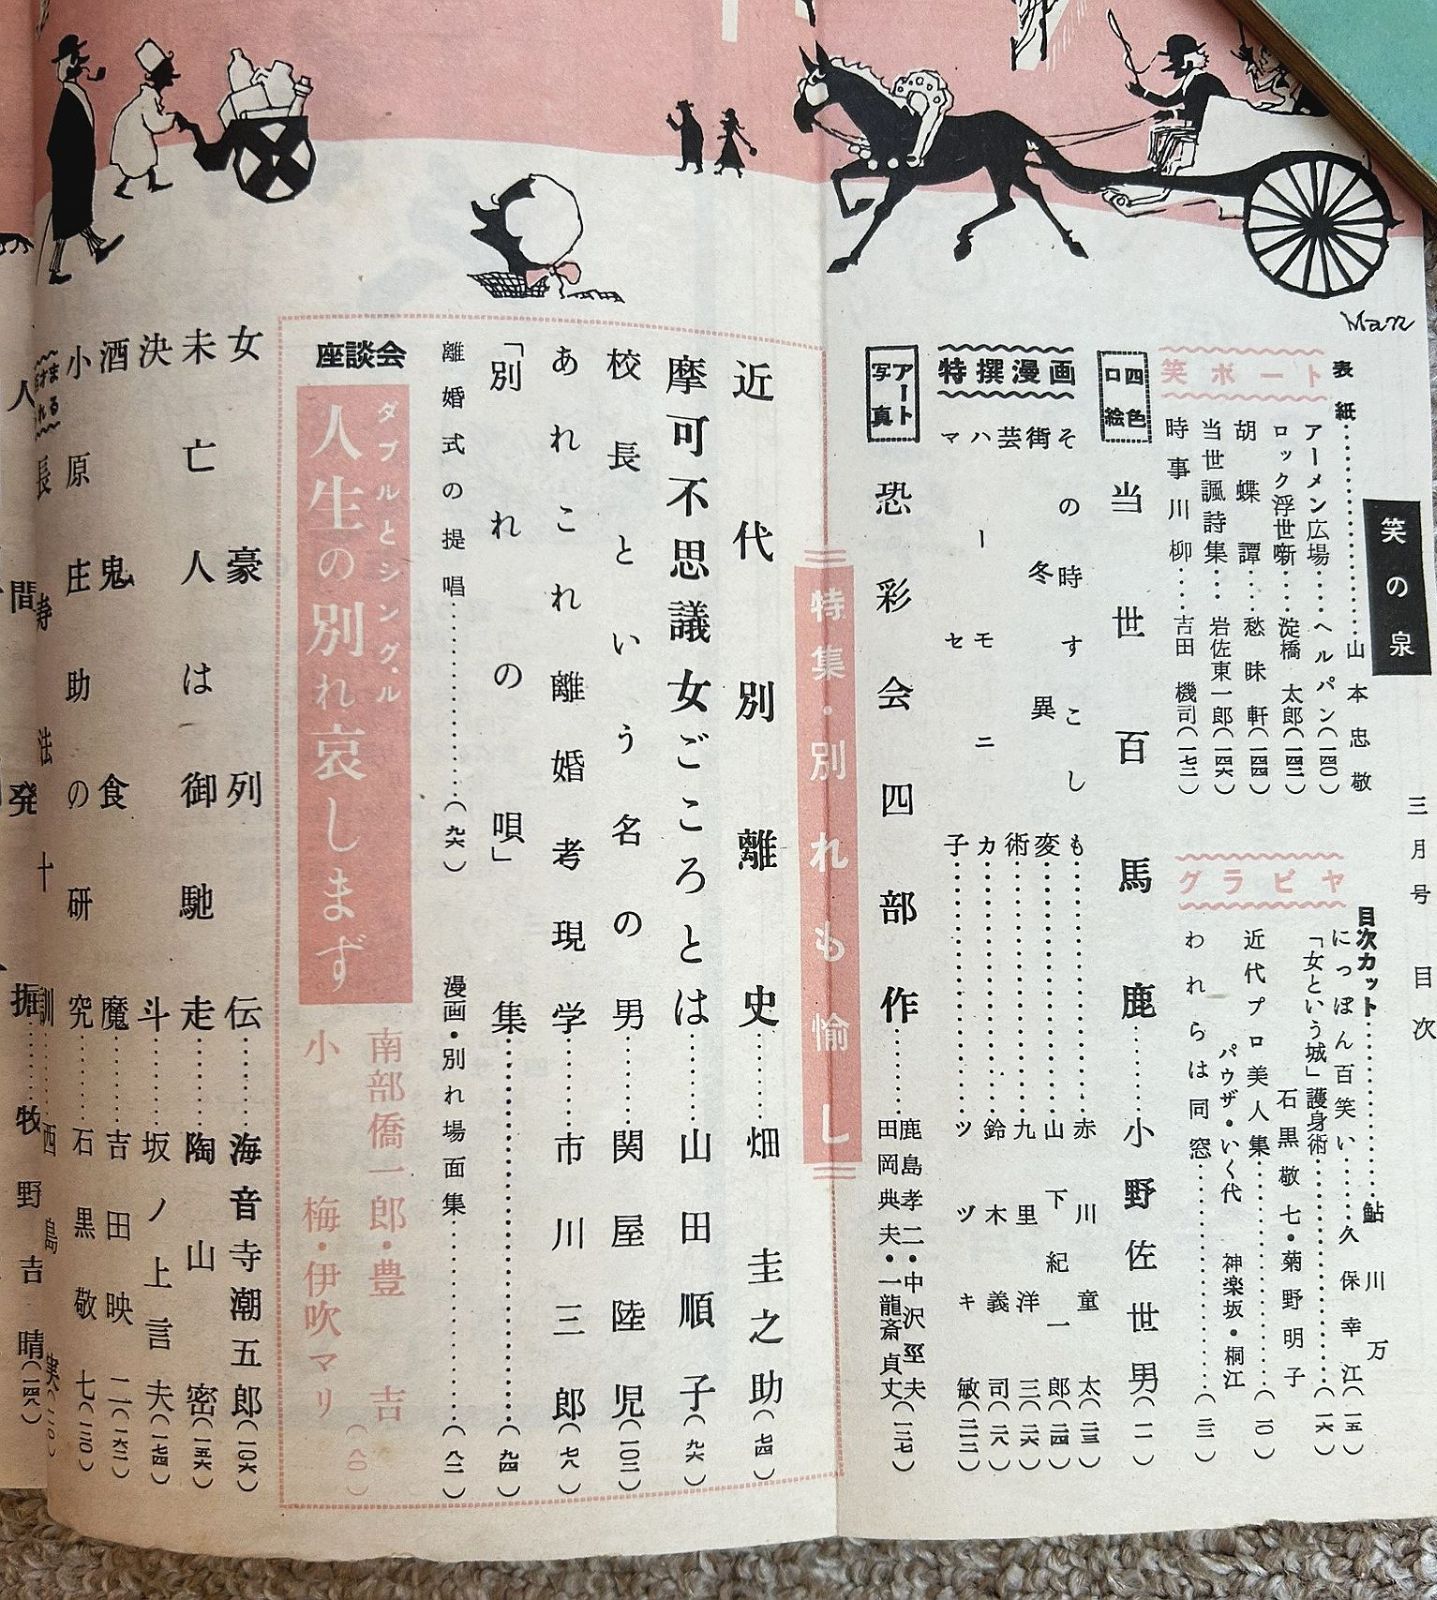 笑の泉
三月号 目次
表紙……山本忠敬
目次カット……鮎川万
笑ポート
アーメン広場……ヘルパン(一四〇)
ロック浮世噺……淀橋太郎(一四二)
胡蝶譚……愁昧軒(一四四)
当世諷詩集……岩佐東一郎(一四六)
時事川柳……吉田機司(一七二)
グラビヤ
にっぽん百笑い……久保幸江(一五)
「女という城」護身術……(一六)
石黒敬七・菊野明子
近代プロ美人集……(一〇)
パウザ・いく代 神楽坂・桐江
われらは同窓……(三一)
四色口絵
当世百馬鹿……小野佐世男(一一)
特撰漫画
その時すこしも……赤川童太(二三)
術冬異変……山下紀一郎(二四)
芸術……九里洋三(二六)
ハーモニカ……鈴木義司(二八)
マセ子……ツヅキ敏(二一二)
アート写真
恐彩会四部作……鹿島孝二・中沢巠夫 田岡典夫・一龍斎貞丈(一三七)
特集・別れも愉し
近代別離史……畑圭之助(七四)
摩可不思議女ごころとは……山田順子(九六)
校長という名の男……関屋陸児(一〇二)
あれこれ離婚考現学……市川三郎(七八)
「別れの唄」集……(九四)
離婚式の提唱……(九六)
漫画・別れ場面集……(八二)
座談会
ダブルとシングル
人生の別れ哀しまず
南部僑一郎・豊吉
小梅・伊吹マリ
(八〇)
女豪列伝……海音寺潮五郎(一〇六)
未亡人は御馳走……陶山密(一五六)
決斗……坂ノ上言夫(一七四)
酒鬼食魔……吉田映二(一六二)
小原庄助の研究……石黒敬七(一二〇)
長寿法十訓……西島実
人間発掘……牧野吉晴(一四八)
Man